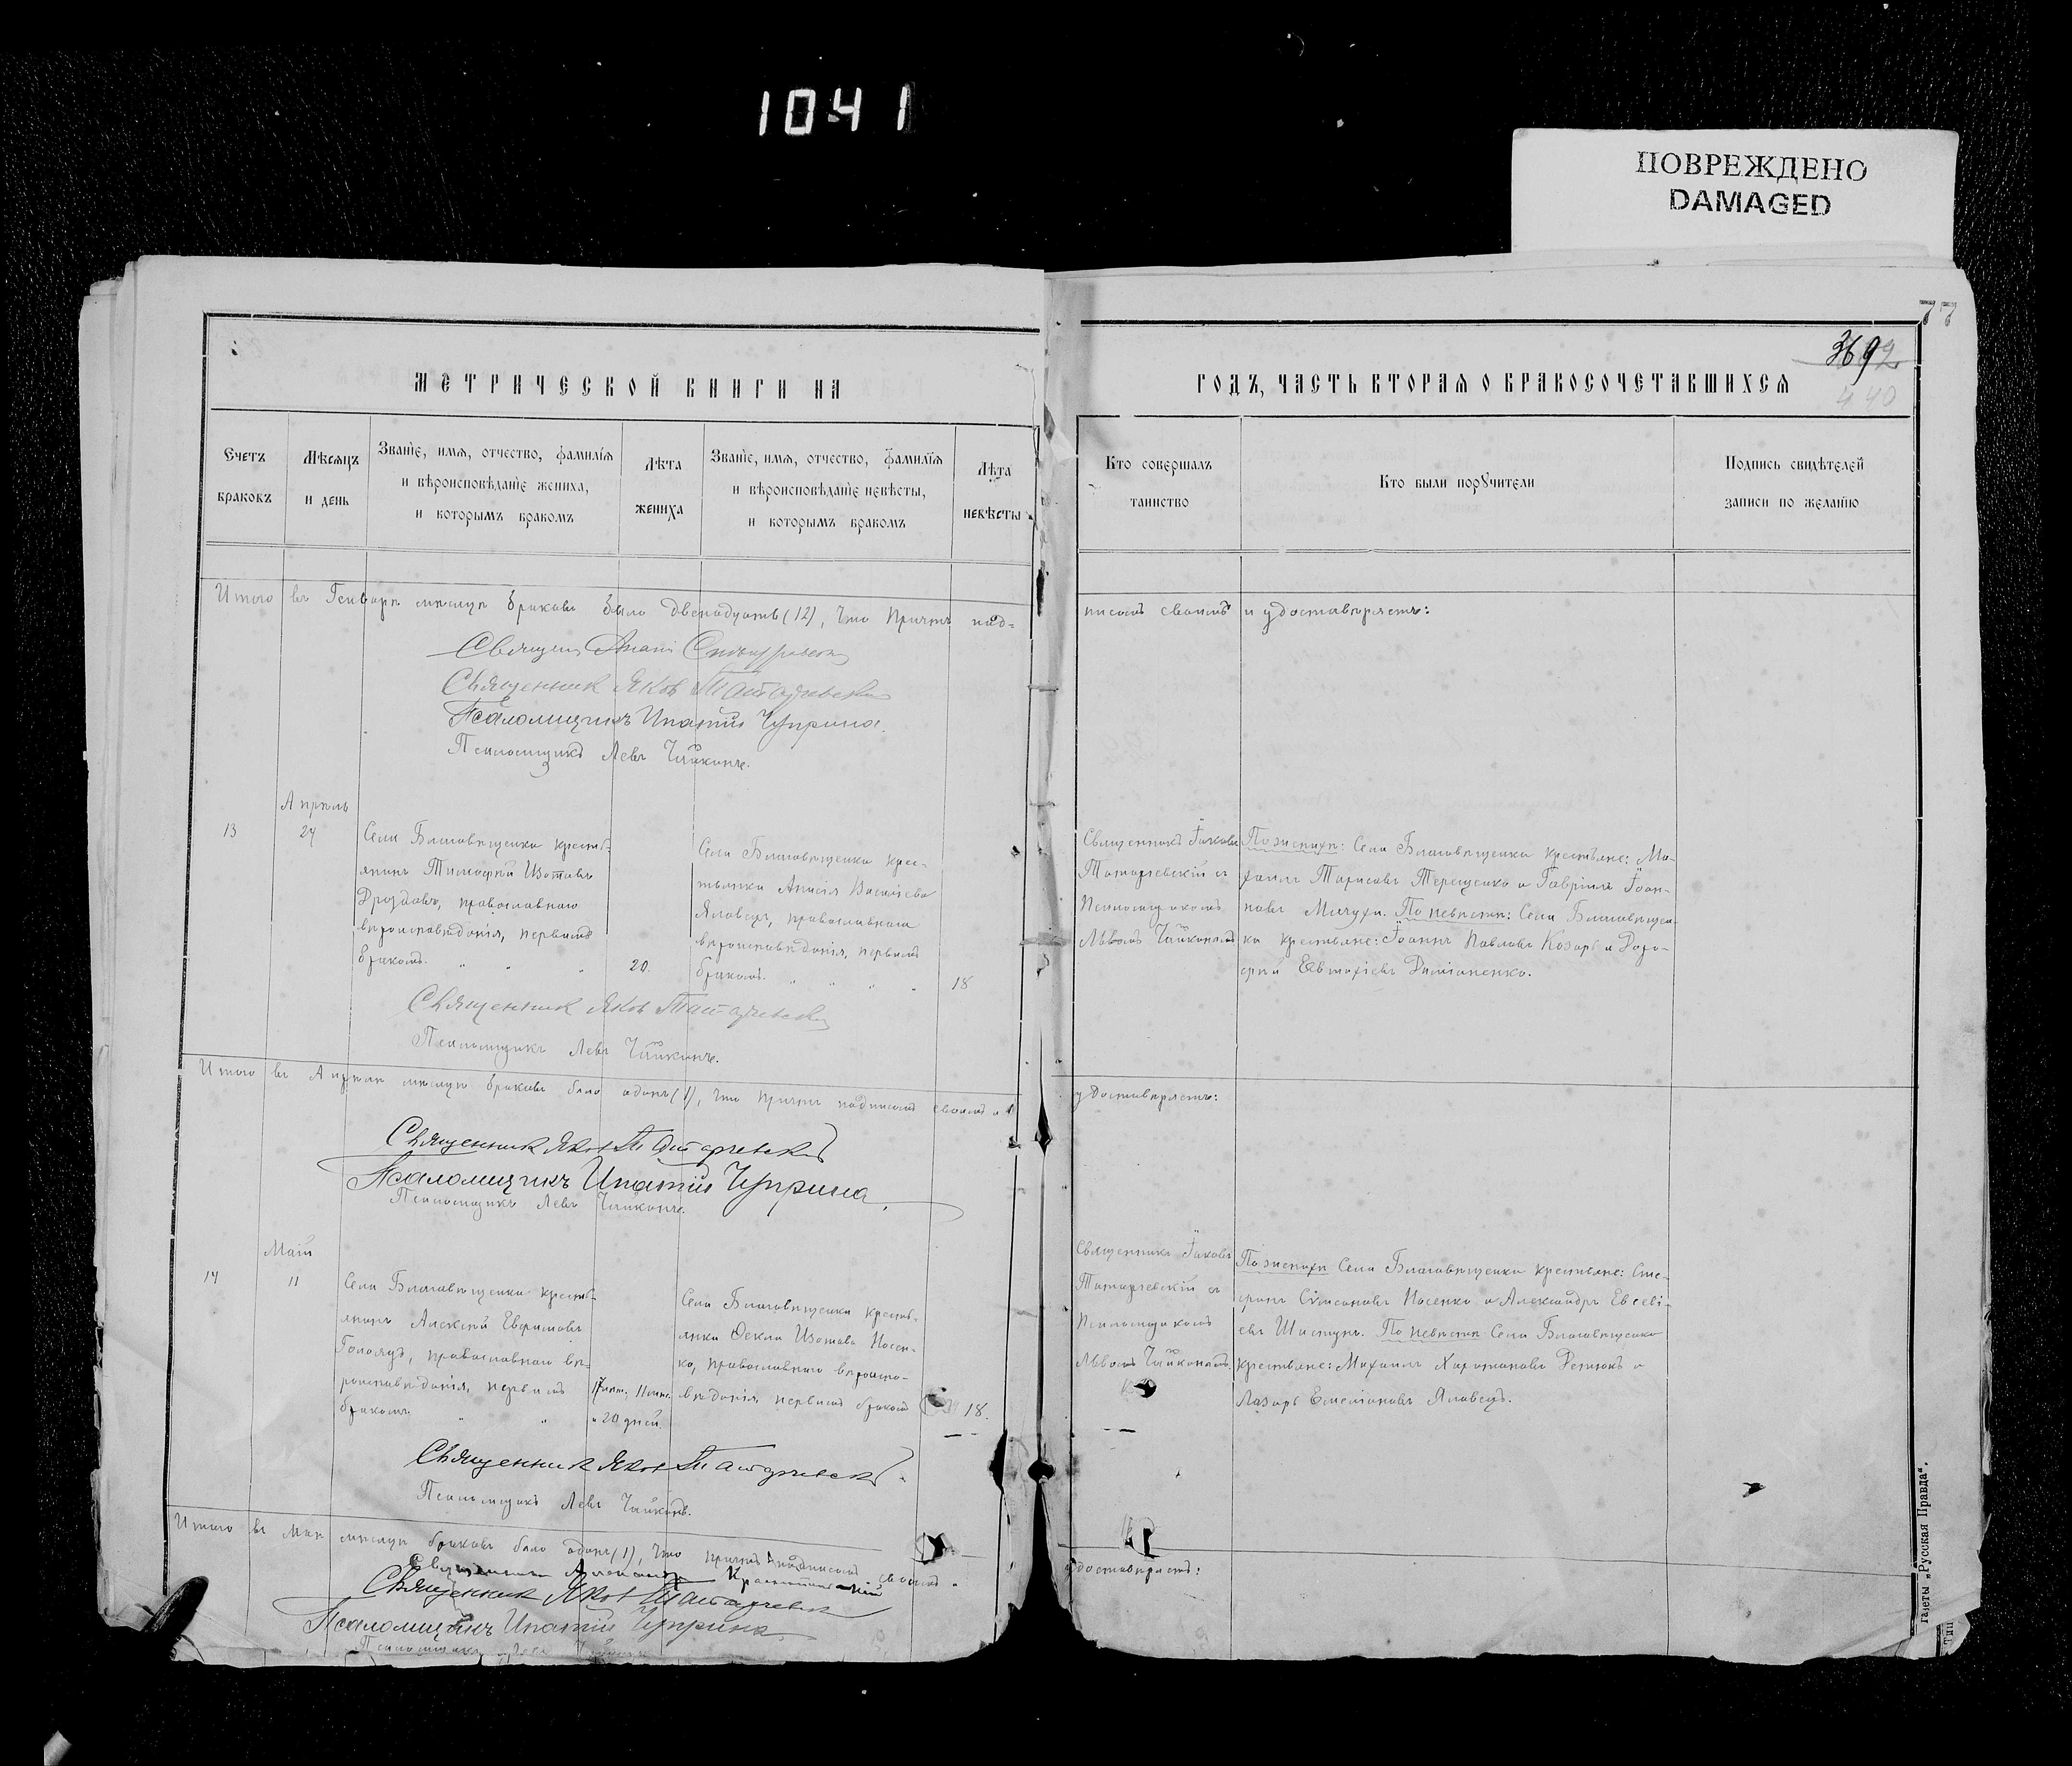 1041
ПОВРЕЖДЕНО
DAMAGED
77
369
440
МЕТРИЧЕСКОЙ КНИГИ НА
ГОДЪ, ЧАСТЬ ВТОРАЯ О БРАКОСОЧЕТАВШИХСЯ
Счетъ
браковъ
Мѣсяцъ
и день
Званіе, имя, отчество, фамилія
и вѣроисповѣданіе жениха,
и которымъ бракомъ
Лѣта
жениха
Званіе, имя, отчество, фамилія
и вѣроисповѣданіе невѣсты,
и которымъ бракомъ
Лѣта
невѣсты
Кто совершалъ
таинство
Кто были поручители
Подпись свидѣтелей
записи по желанію
Итого въ Генварѣ мѣсяцѣ браковъ было двенадцать (12), что причтъ под-
писомъ своимъ и удостовѣряетъ:
Священникъ
Священник Яков Татарчевский
Псаломщикъ Ипатій Чуприна.
Псаломщикъ Левъ Чайкинъ.
Апрѣль
13
24
Села Благовѣщенка кресть-
янинъ Тимофей Изотовъ
Дроздовъ, православнаго
вѣроисповѣданія, первымъ
бракомъ.
20.
Села Благовѣщенка крес-
тьянка Анисія Васильева
Яловецъ, православнаго
вѣроисповѣданія, первымъ
бракомъ.
18
Священникъ Іаковъ
Татарчевскій съ
Псаломщикомъ
Львомъ Чайкинымъ
По женихѣ: Села Благовѣщенка крестьяне: Ми-
хаилъ Тарасовъ Терещенко и Гавріилъ Іоан-
новъ Мичуха. По невѣстѣ: Села Благовѣщен-
ка крестьяне: Іоаннъ Павловъ Козарь и Доро-
фей Евтихіевъ Даміаненко.
Священник Яков Татарчевский
Псаломщикъ Левъ Чайкинъ.
Итого въ Апрѣлѣ мѣсяцѣ браковъ было одинъ (1), что причтъ подписомъ своимъ и
удостовѣряетъ:
Священник Яков Татарчевский
Псаломщикъ Ипатій Чуприна.
Псаломщикъ Левъ Чайкинъ.
Май
14
11
Села Благовѣщенка кресть-
янинъ Алексѣй Евфимовъ
Гололудъ, православнаго вѣ-
роисповѣданія, первымъ
бракомъ
17 лѣт, 11 мѣс.
и 20 дней.
Села Благовѣщенка кресть-
янка Ѳекла Изотова Носен-
ко, православнаго вѣроиспо-
вѣданія, первымъ бракомъ
18.
Священникъ Іаковъ
Татарчевскій съ
Псаломщикомъ
Львомъ Чайкинымъ.
По женихѣ Села Благовѣщенка крестьяне: Сте-
фанъ Симеоновъ Носенко и Александръ Евсеві-
евъ Шастунъ. По невѣстѣ Села Благовѣщенка
крестьяне: Михаилъ Харитоновъ Репюкъ и
Лазарь Емеліановъ Яловецъ.
Священник Яков Татарчевский
Псаломщикъ Левъ Чайкинъ.
Итого въ Маѣ мѣсяцѣ браковъ было одинъ (1), что причтъ подписомъ своимъ и
удостовѣряетъ:
Священникъ
Священник Яков Татарчевский
Псаломщикъ Ипатій Чуприна.
Псаломщикъ Левъ Чайкинъ
газеты „Русская Правда“.
Тип